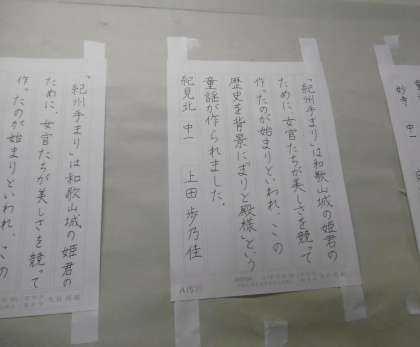 「紀州手まり」は和歌山城の姫君の
ために、女官たちが美しさを競って
作ったのが始まりといわれ、この
歴史を背景に「まりと殿様」という
童謡が作られました。
紀見北 中一 上田 歩乃佳
「紀州手まり」は和歌山城の姫君の
ために、女官たちが美しさを競って
作ったのが始まりといわれ、この
妙寺 中一